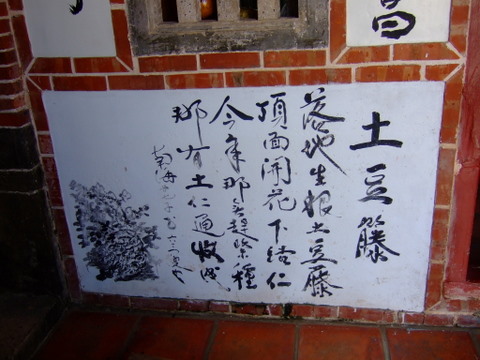 昌
土豆籐
落地生根土豆籐
頂面開花下結仁
今年那無趕緊種
那有土仁通收成
南海